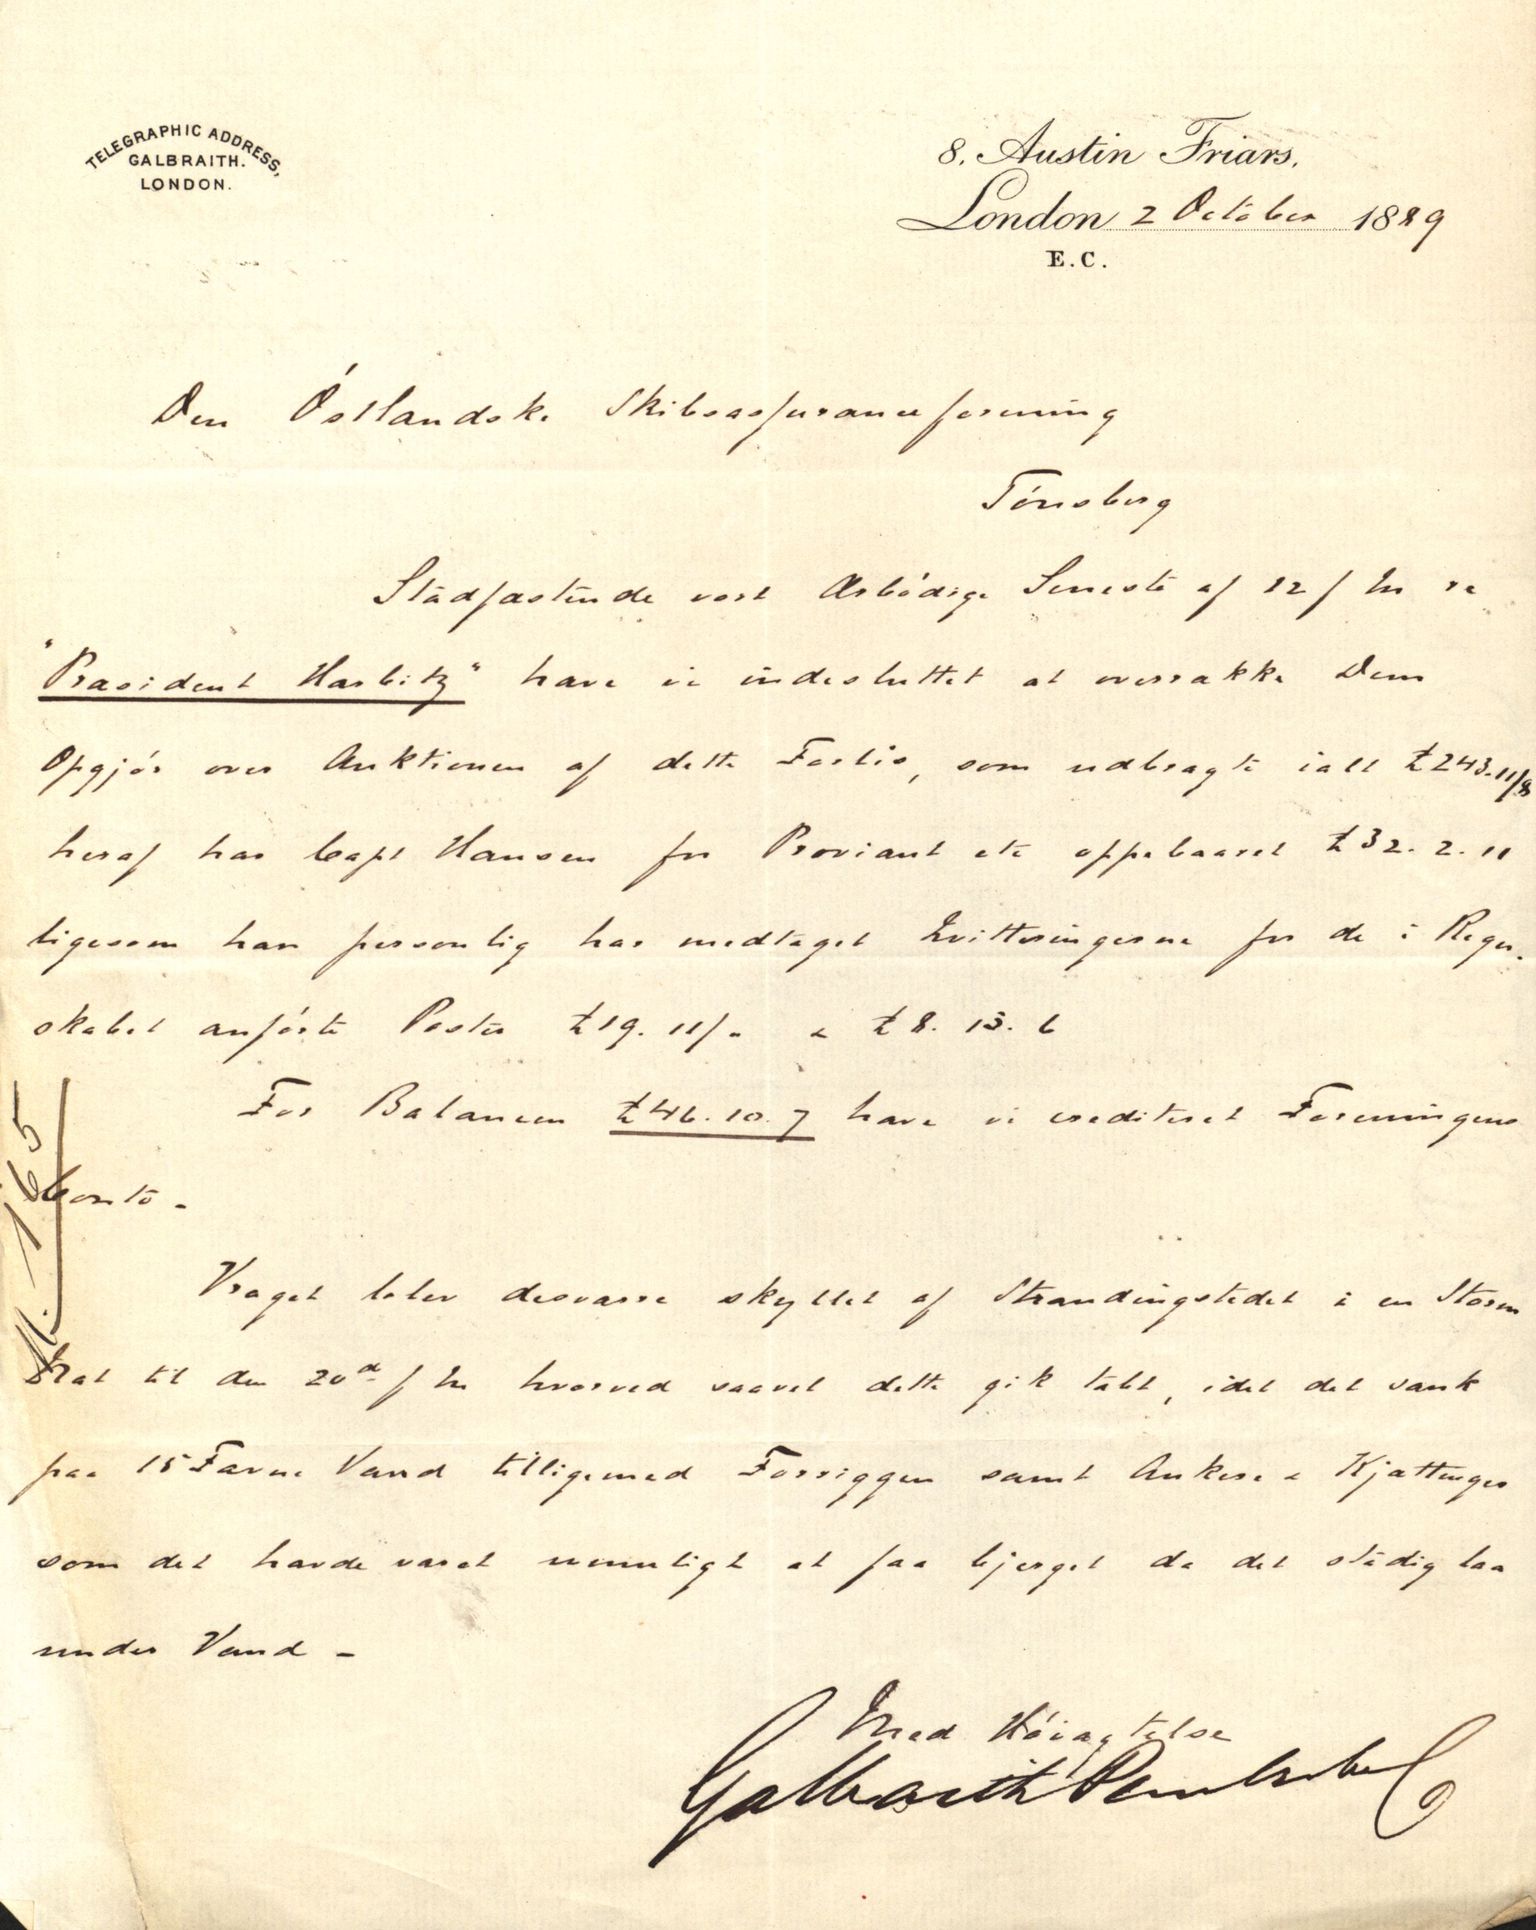 TELEGRAPHIC ADDRESS,
GALBRAITH.
LONDON.
8, Austin Friars,
London 2 October 1889
E.C.
Den Óstlandske Skibsassuranceforening
Tónsberg
Stadfæstende vort Ærbódige Seneste af 12 f M re
"Præsident Harbitz" have vi indesluttet at overrække Dem
Opgjór over Auktionen af dette Forlis, som udbragte ialt £243.11/8
heraf har Capt Hansen for Proviant etc oppebaaret £32.2.11
ligesom han personlig har medtaget Qvitteringerne for de i Regn-
skabet anfórte Poster £19.11/- & £8.13.6
For Balancen £46.10.7 have vi crediteret Foreningens
Conto -
Vraget blev desværre skyllet af Strandingstedet i en Storm
Nat til den 20d f M hvorved saavel dette gik tabt, idet det sank
paa 15 Favne Vand tilligemed Forriggen samt Ankere & Kjættinger
som det havde været umuligt at faa bjerget da det stadig laa
under Vand -
Med Hóiagtelse
Galbraith Pembroke &Co
165